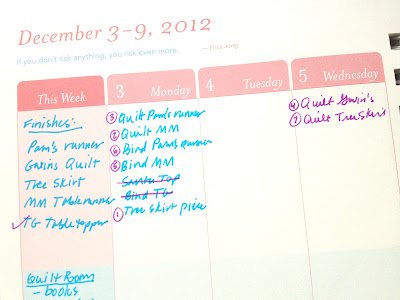 December 3–9, 2012
If you don't risk anything, you risk even more. — Erica Jong
This Week
Finishes:
Pam's runner
Gavins Quilt
Tree Skirt
MM Tablerunner
✓TG Tabletopper
Quilt Room
- books
3 Monday
③ Quilt Pam's runner
② Quilt MM
⑥ Bind Pam's runner
Bind MM
Santa Top
Bind TG
① Tree skirt piece
4 Tuesday
5 Wednesday
④ Quilt Gavin's
⑦ Quilt Tree Skirt